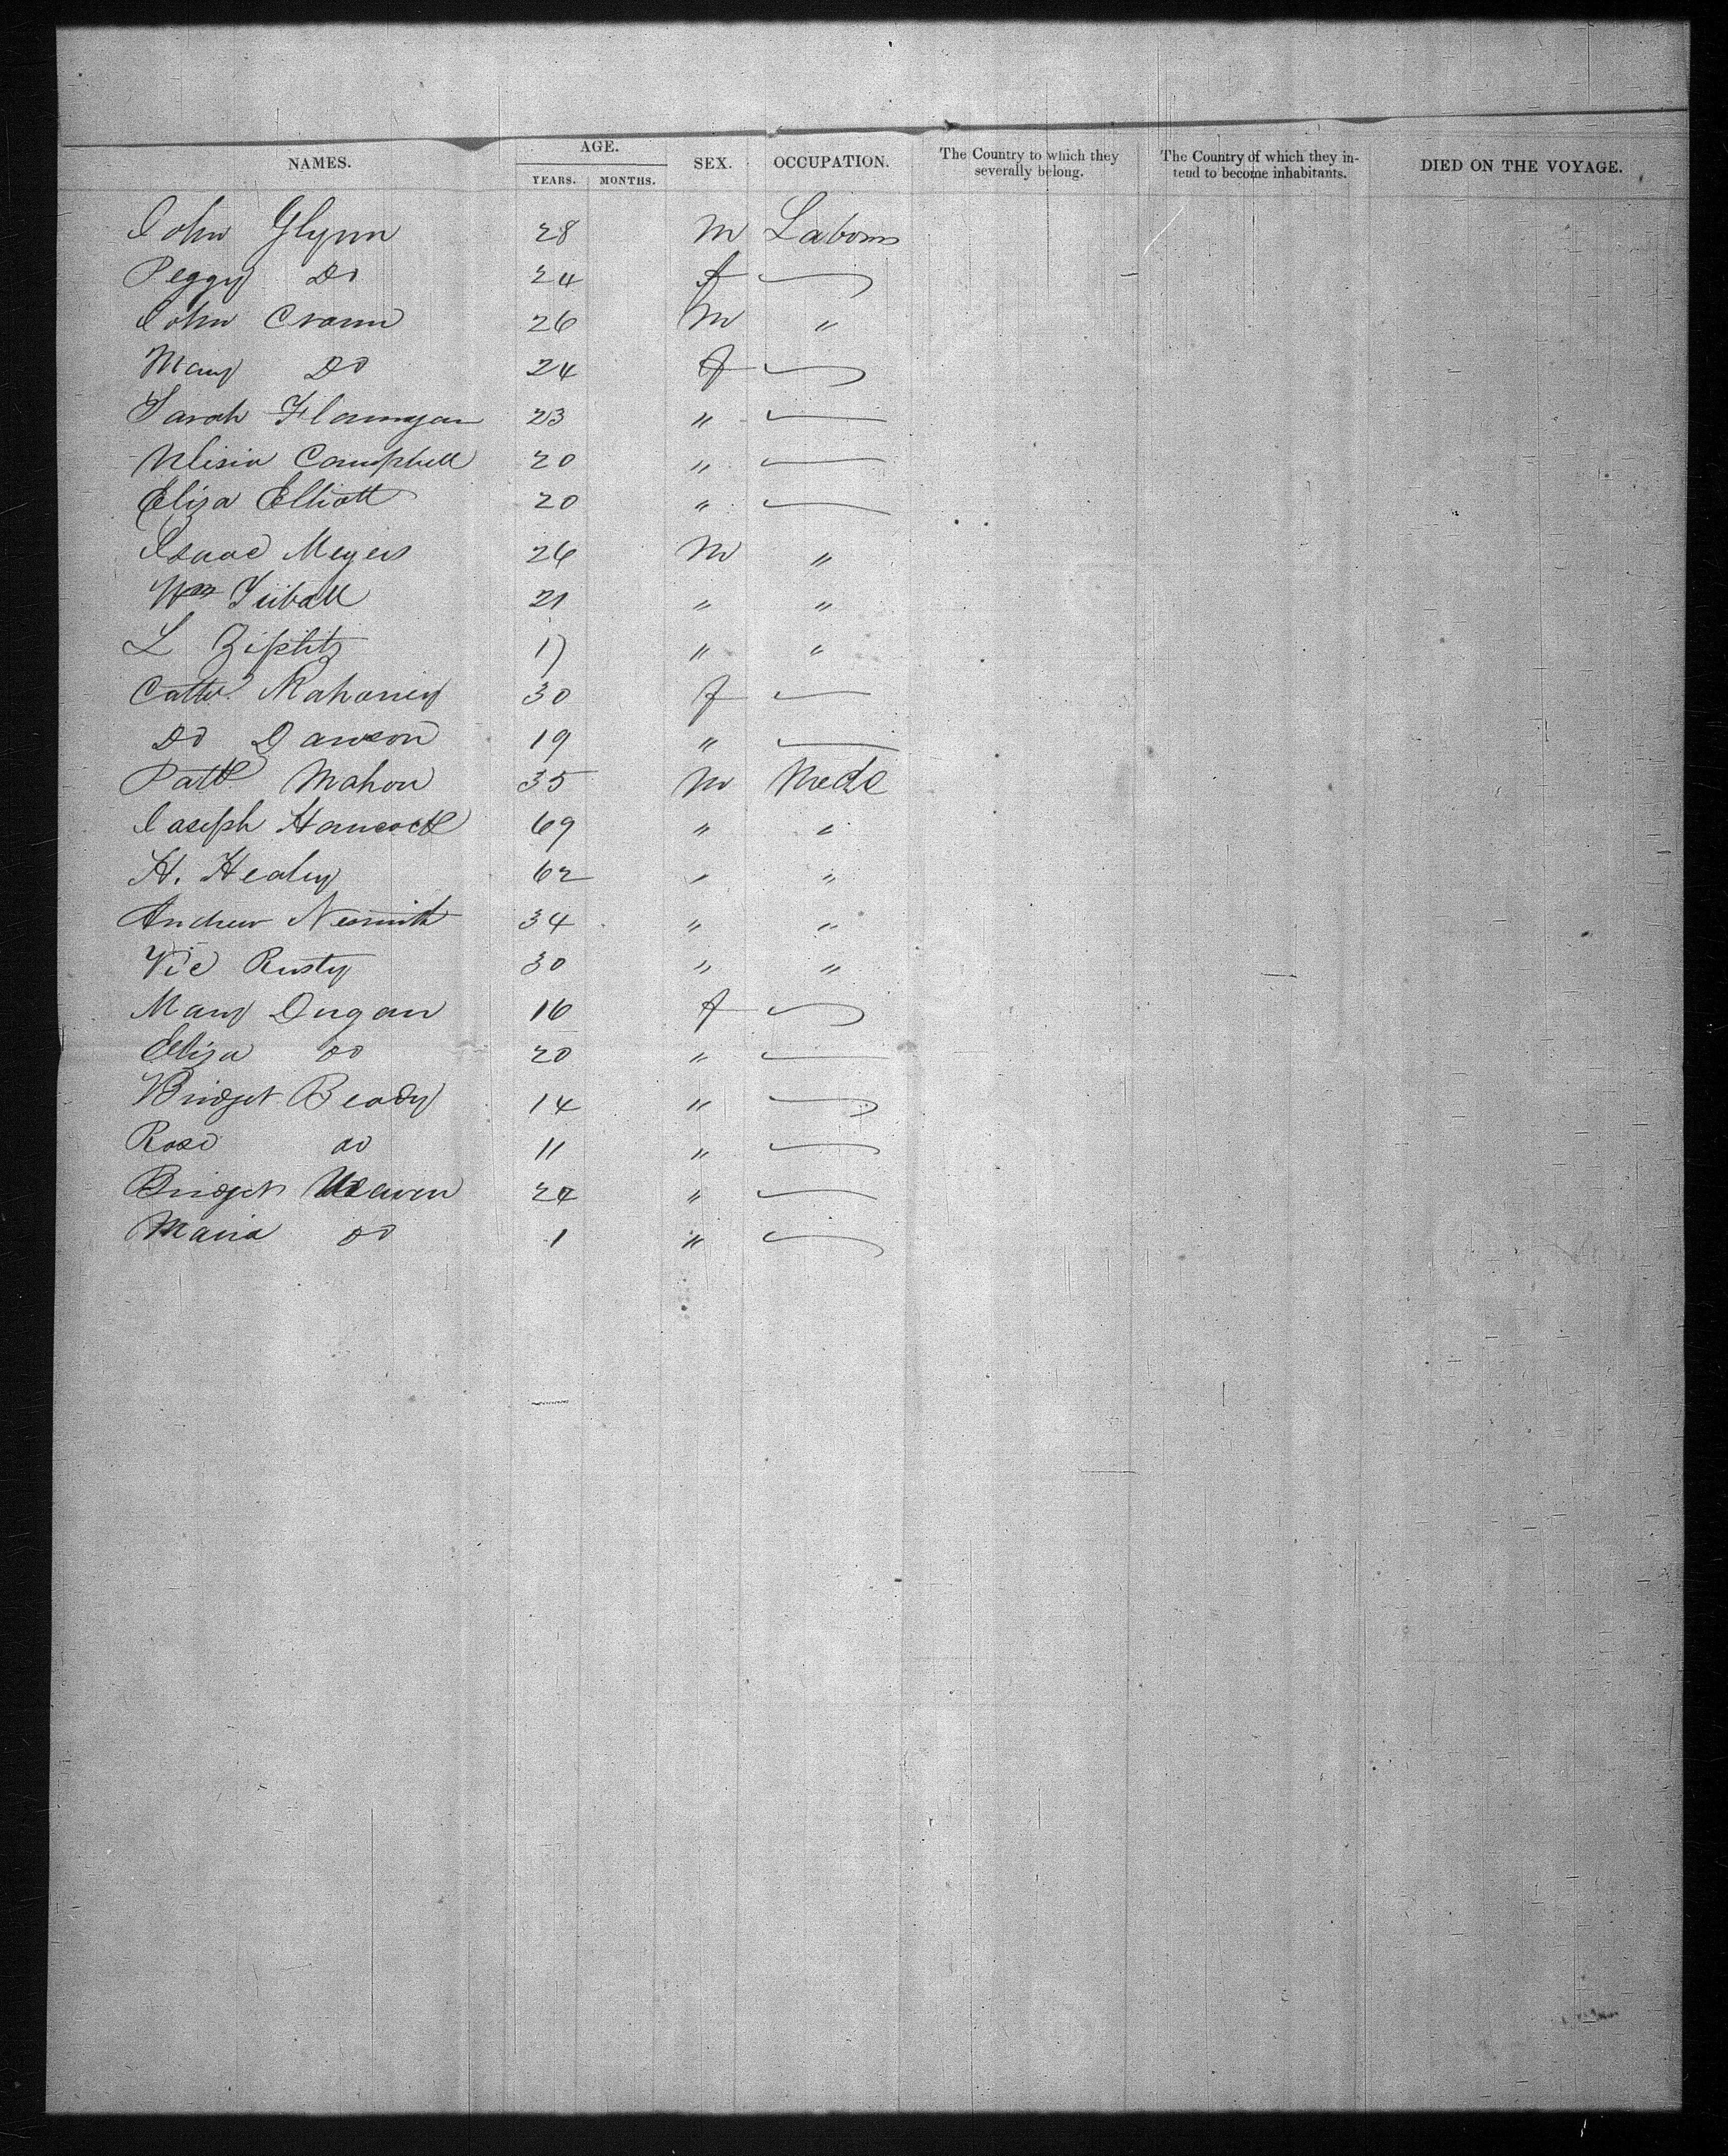 NAMES. AGE. YEARS. MONTHS. SEX. OCCUPATION. The Country to which they severally belong. The Country of which they intend to become inhabitants. DIED ON THE VOYAGE.
John Glynn 28 M Labourer
Peggy Do 24 f
John Crann 26 M "
Mary Do 24 f
Sarah Flannigan 23 "
Campbell 20 "
Eliza Elliott 20 "
Isaac Meyers 26 M "
Wm 21 " "
L 17 " "
Cathe Mahoney 30 f
Do Dawson 19 "
Patk Mahon 35 M Mede
Joseph Hancock 69 " "
H. Healey 62 " "
Andrew Nesmith 34 " "
Vic Rusty 30 " "
Mary Dugan 16 f
Eliza do 20 "
Bridget Beady 14 "
Rose do 11 "
Bridget 24 "
Maria do 1 "